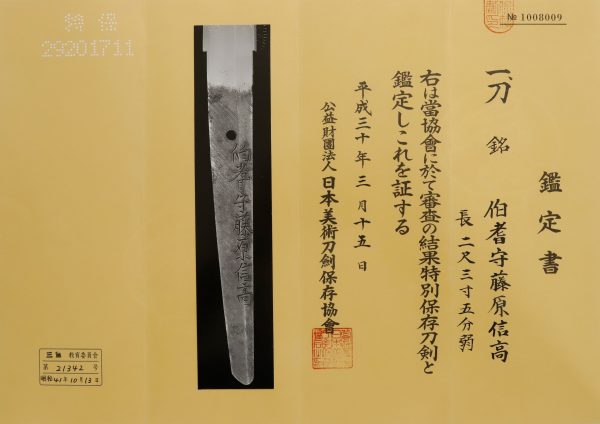 № 1008009
鑑定書
一、刀 銘 伯耆守藤原信高
長 二尺三寸五分弱
右は當協會に於て審査の結果特別保存刀剣と
鑑定しこれを証する
平成三十年三月十五日
公益財團法人 日本美術刀劍保存協會
伯耆守藤原信高
特 保
29201711
教育委員会
第 21342 号
昭和41年10月13日